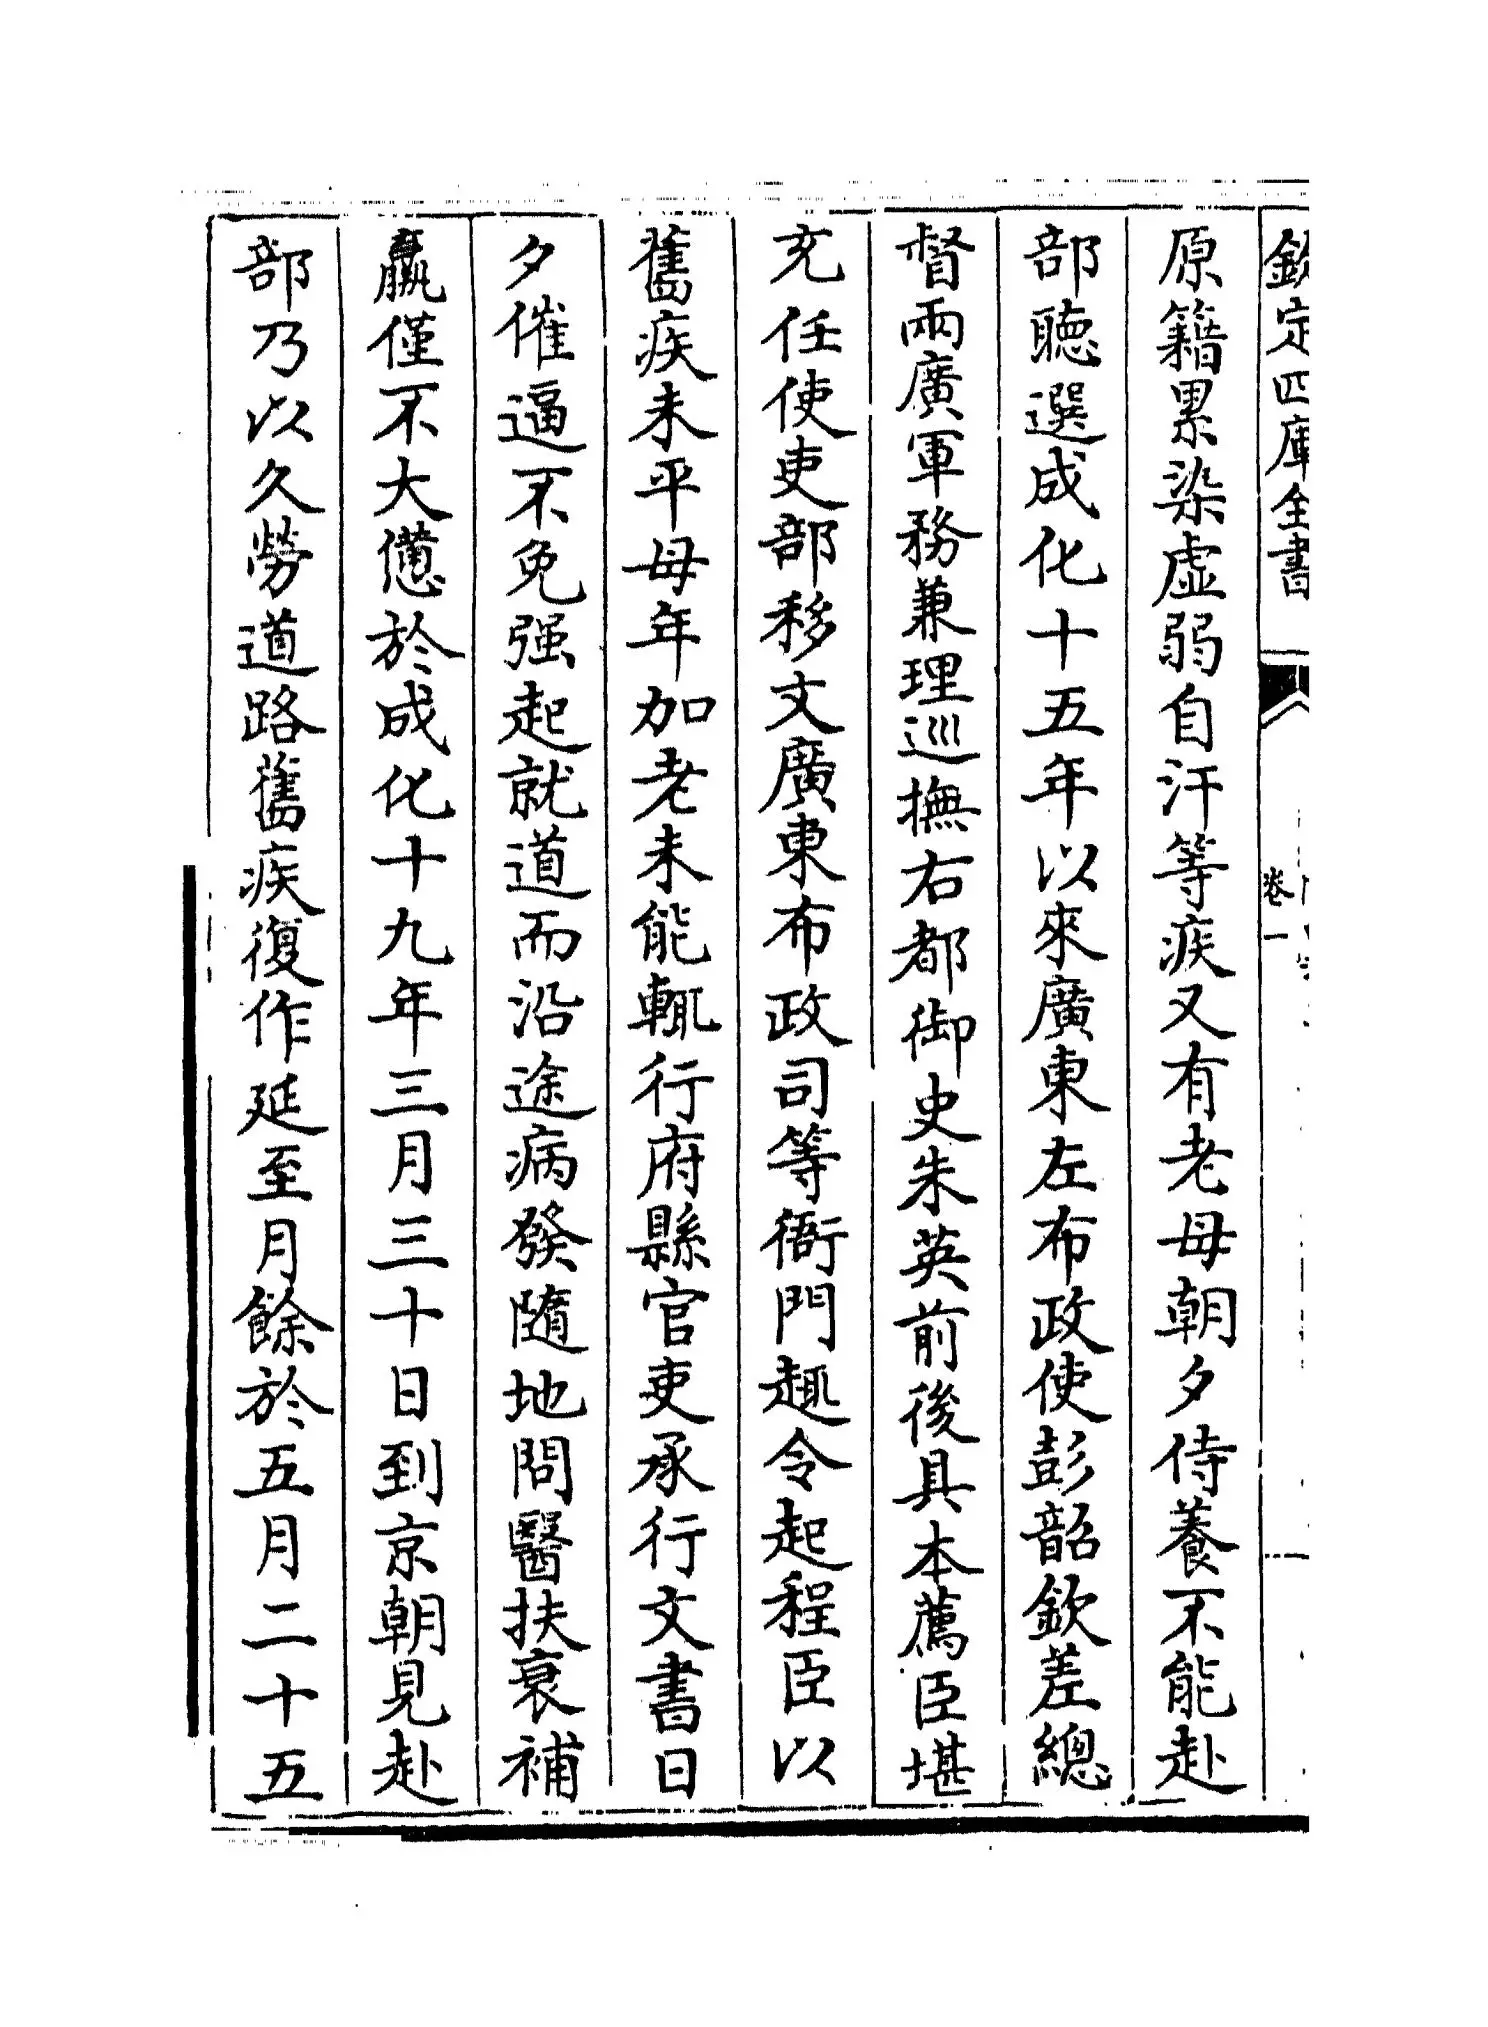 欽定四庫全書
卷一
原籍累染虛弱自汗等疾又有老母朝夕侍養不能赴
部聽選成化十五年以來廣東左布政使彭韶欽差總
督兩廣軍務兼理巡撫右都御史朱英前後具本薦臣堪
充任使吏部移文廣東布政司等衙門趣令起程臣以
舊疾未平母年加老未能輒行府縣官吏承行文書日
夕催逼不免强起就道而沿途病發隨地問醫扶衰補
羸僅不大憊於成化十九年三月三十日到京朝見赴
部乃以久勞道路舊疾復作延至月餘於五月二十五